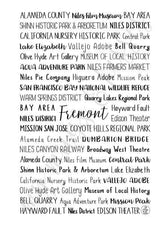 ALAMEDA COUNTY Niles Film Museum BAY AREA
SHINN HISTORIC PARK & ARBORETUM NILES DISTRICT
CALIFORNIA NURSERY HISTORIC PARK Central Park
Lake Elizabeth Vallejo Adobe Bell Quarry
Olive Hyde Art Gallery MUSEUM OF LOCAL HISTORY
AQUA ADVENTURE PARK NILES FARMERS MARKET
Niles Pie Company Higuera Adobe Mission Peak
SAN FRANCISCO BAY NATIONAL WILDLIFE REFUGE
WARM SPRINGS DISTRICT Quarry Lakes Regional Park
BAY AREA Hayward Fault
NILES DISTRICT Fremont Edison Theater
MISSION SAN JOSE COYOTE HILLS REGIONAL PARK
Alameda Creek Trail DUMBARTON BRIDGE
NILES CANYON RAILWAY Broadway West Theatre
Alameda County Niles Film Museum Central Park
Shinn Historic Park & Arboretum Lake Elizabeth
California Nursery Historic Park VALLEJO ADOBE
Olive Hyde Art Gallery Museum of Local History
BELL QUARRY Aqua Adventure Park Mission Peak
HAYWARD FAULT Niles District EDISON THEATER